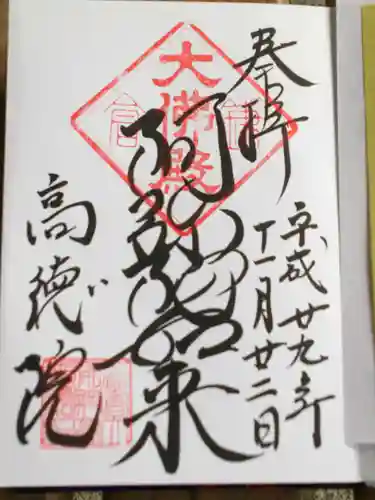 奉拝
平成廿九年
十一月廿二日
大佛殿
鎌倉
阿弥陀如来
高徳院